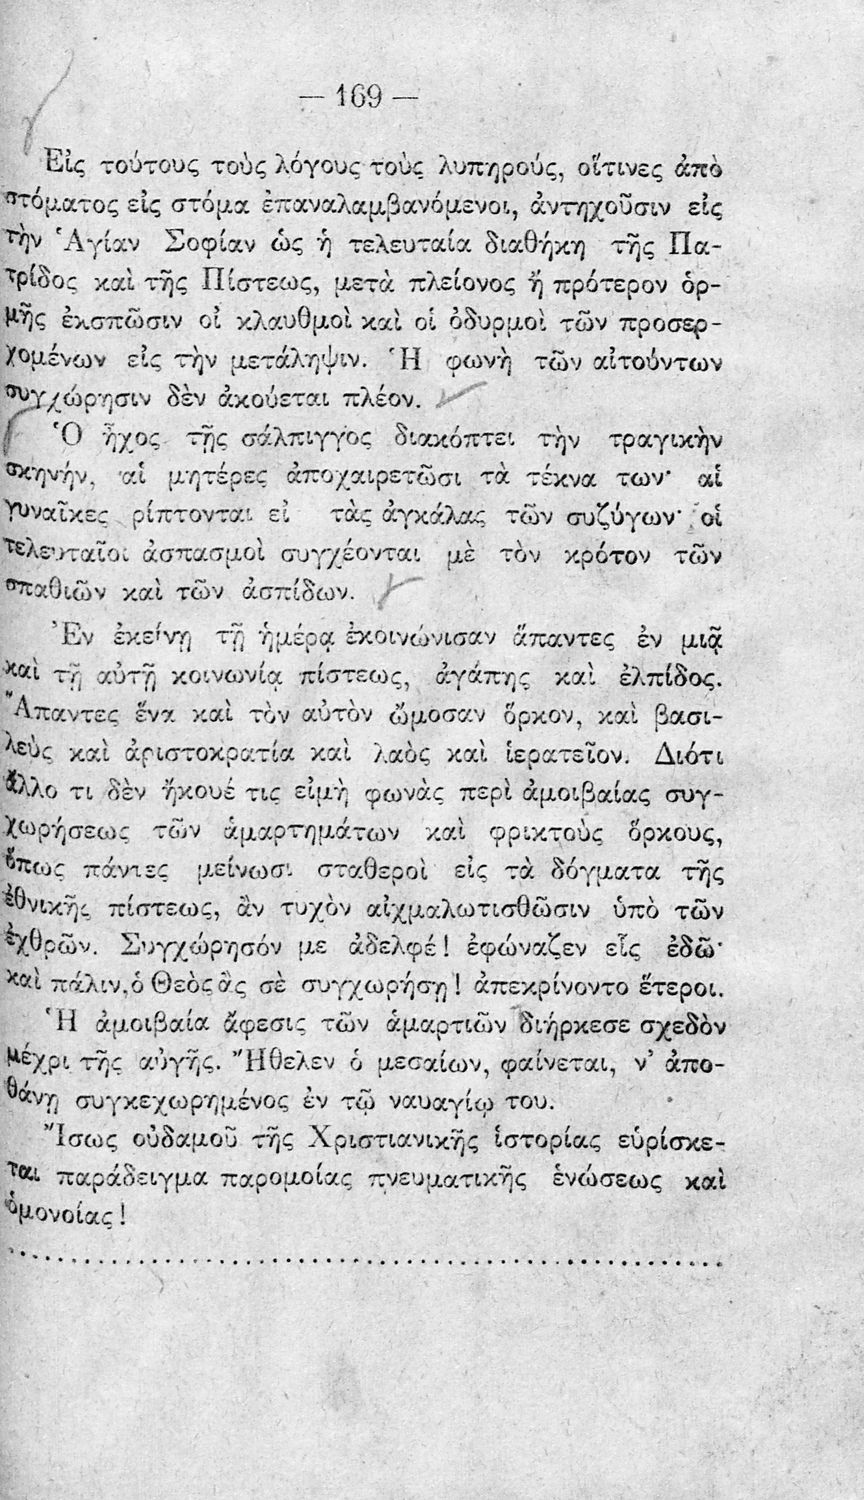 — 169 —
Εἰς τούτους τοὺς λόγους τοὺς λυπηρούς, οἵτινες ἀπὸ
στόματος εἰς στόμα ἐπαναλαμβανόμενοι, ἀντηχοῦσιν εἰς
τὴν Ἁγίαν Σοφίαν ὡς ἡ τελευταία διαθήκη τῆς Πα-
τρίδος καὶ τῆς Πίστεως, μετὰ πλείονος ἢ πρότερον ὁρ-
μῆς ἐκσπῶσιν οἱ κλαυθμοὶ καὶ οἱ ὀδυρμοὶ τῶν προσερ-
χομένων εἰς τὴν μετάληψιν. Ἡ φωνὴ τῶν αἰτούντων
συγχώρησιν δὲν ἀκούεται πλέον.
Ὁ ἦχος τῆς σάλπιγγος διακόπτει τὴν τραγικὴν
σκηνήν, αἱ μητέρες ἀποχαιρετῶσι τὰ τέκνα των· αἱ
γυναῖκες ρίπτονται εἰ τὰς ἀγκάλας τῶν συζύγων· οἱ
τελευταῖοι ἀσπασμοὶ συγχέονται μὲ τὸν κρότον τῶν
σπαθιῶν καὶ τῶν ἀσπίδων.
Ἐν ἐκείνῃ τῇ ἡμέρᾳ ἐκοινώνισαν ἅπαντες ἐν μιᾷ
καὶ τῇ αὐτῇ κοινωνίᾳ πίστεως, ἀγάπης καὶ ἐλπίδος.
Ἅπαντες ἕνα καὶ τὸν αὐτὸν ὤμοσαν ὅρκον, καὶ βασι-
λεὺς καὶ ἀριστοκρατία καὶ λαὸς καὶ ἱερατεῖον. Διότι
ἄλλο τι δὲν ἤκουέ τις εἰμὴ φωνὰς περὶ ἀμοιβαίας συγ-
χωρήσεως τῶν ἁμαρτημάτων καὶ φρικτοὺς ὅρκους,
ὅπως πάντες μείνωσι σταθεροὶ εἰς τὰ δόγματα τῆς
ἐθνικῆς πίστεως, ἂν τυχὸν αἰχμαλωτισθῶσιν ὑπὸ τῶν
ἐχθρῶν. Συγχώρησόν με ἀδελφέ! ἐφώναζεν εἷς ἐδῶ·
καὶ πάλιν, ὁ Θεὸς ἂς σὲ συγχωρήσῃ! ἀπεκρίνοντο ἕτεροι.
Ἡ ἀμοιβαία ἄφεσις τῶν ἁμαρτιῶν διήρκεσε σχεδὸν
μέχρι τῆς αὐγῆς. Ἤθελεν ὁ μεσαίων, φαίνεται, ν' ἀπο-
θάνῃ συγκεχωρημένος ἐν τῷ ναυαγίῳ του.
Ἴσως οὐδαμοῦ τῆς Χριστιανικῆς ἱστορίας εὑρίσκε-
ται παράδειγμα παρομοίας πνευματικῆς ἑνώσεως καὶ
ὁμονοίας!